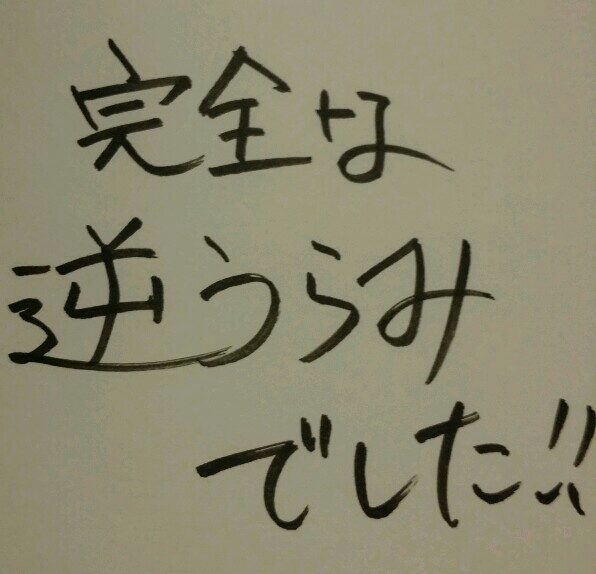 完全な
逆うらみ
でした!!